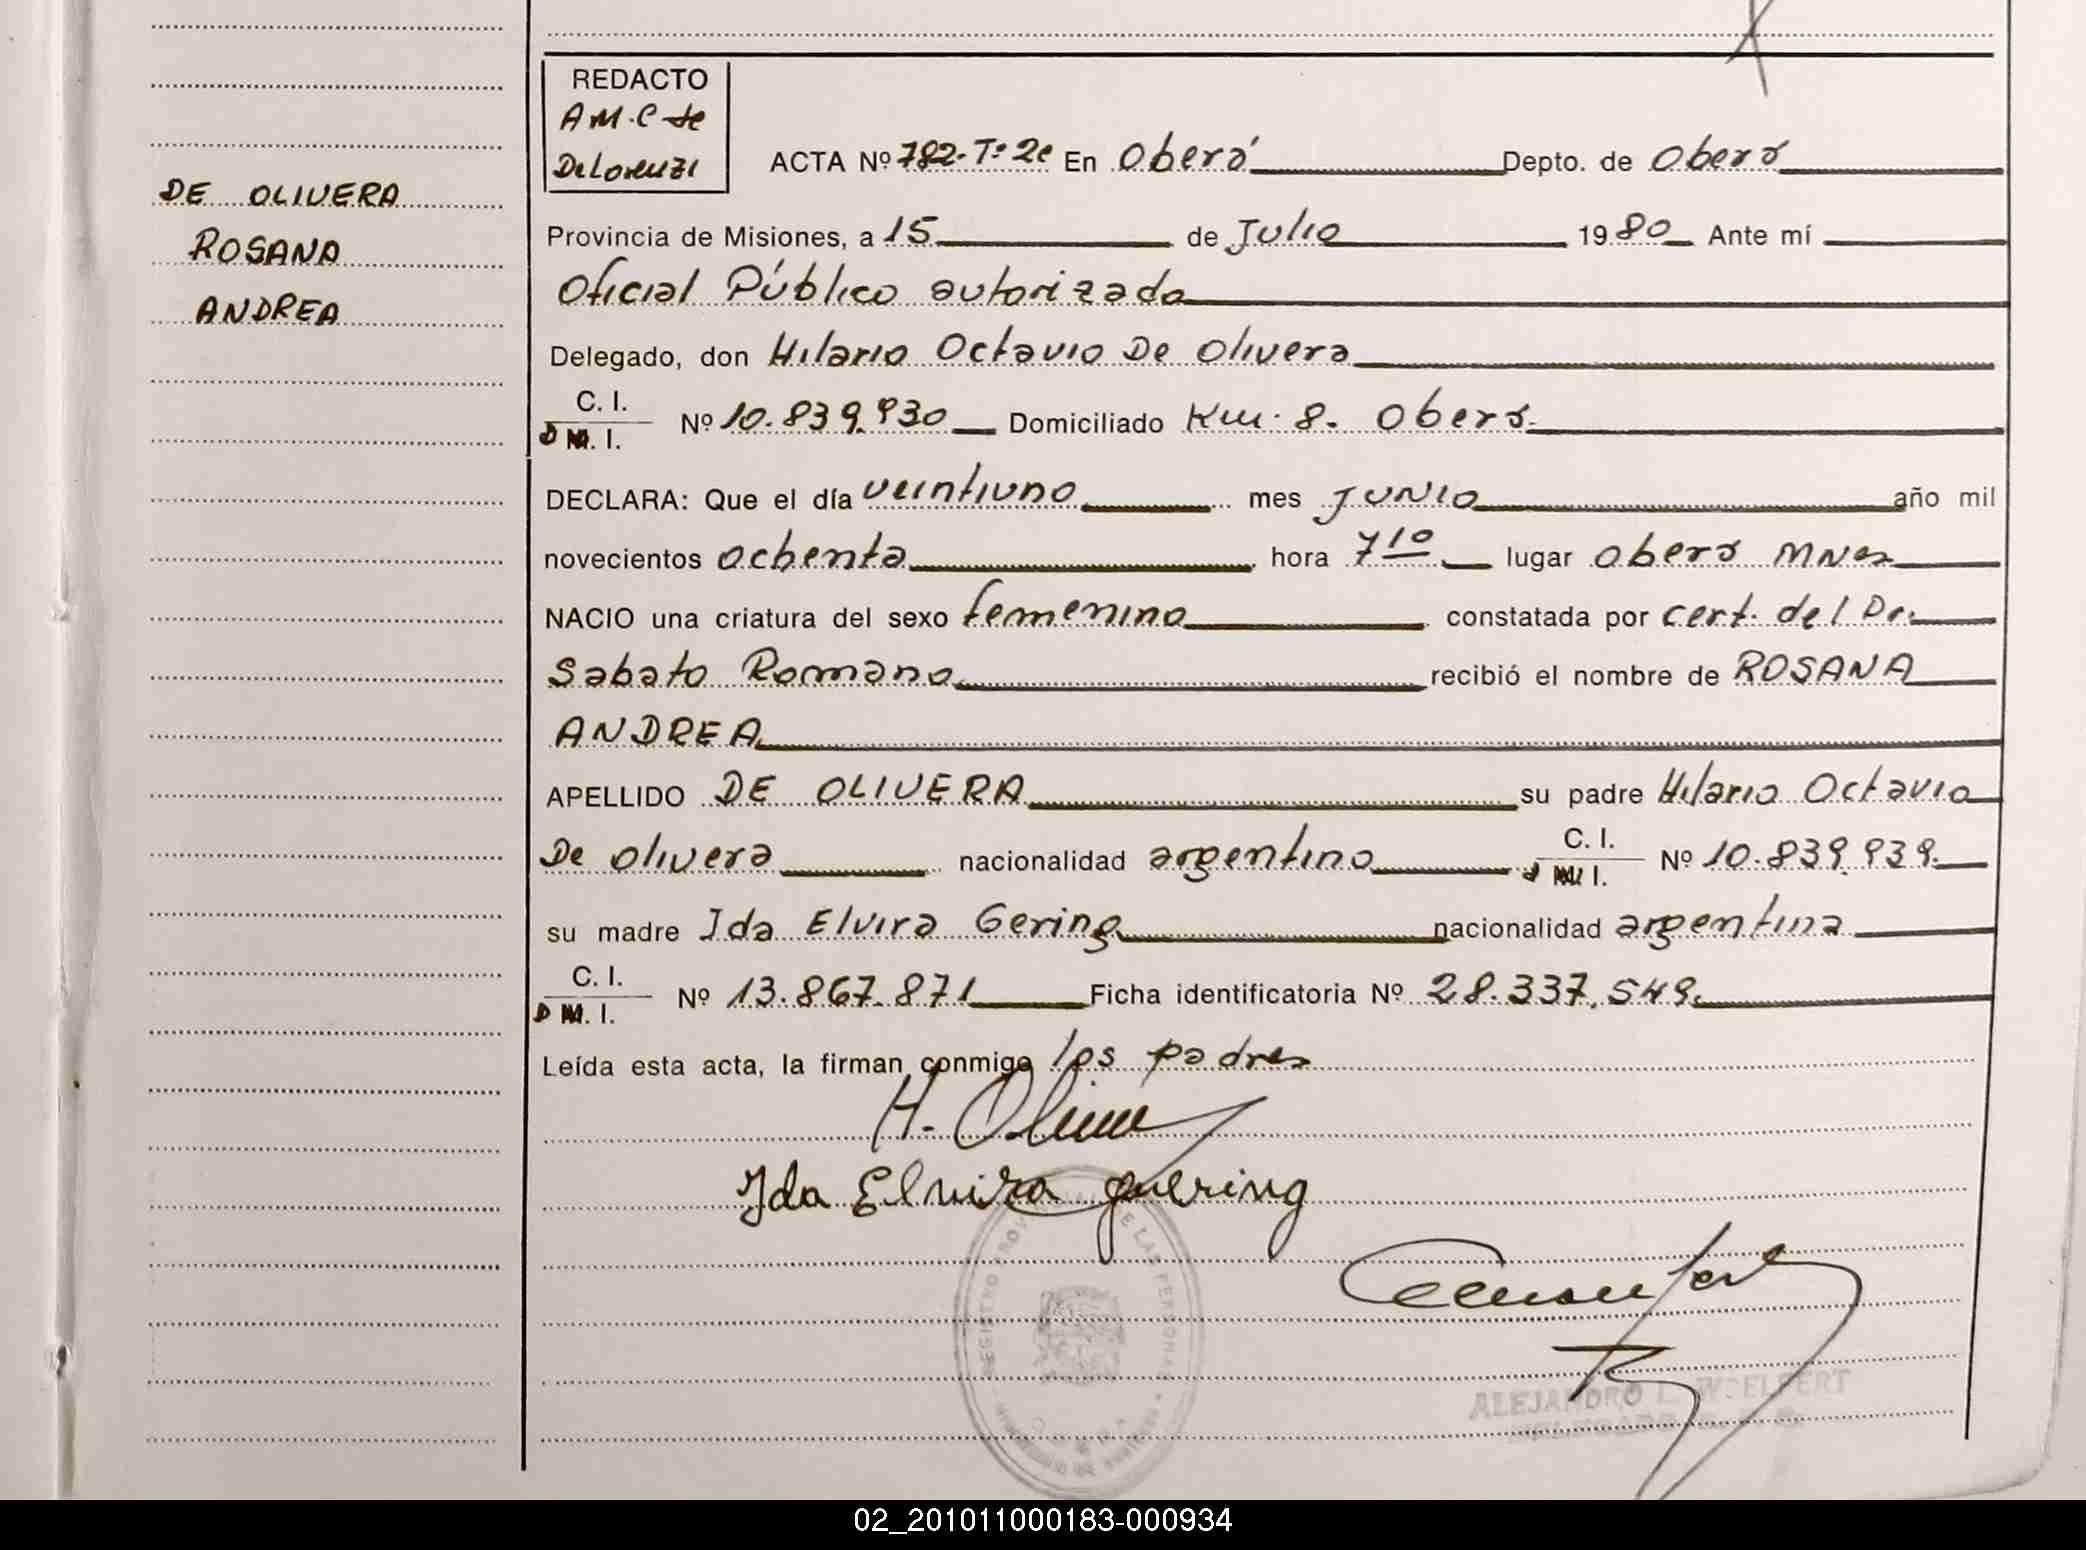 REDACTO
A M. C de
De Lorenzi
DE OLIVERA
ROSANA
ANDREA
ACTA Nº 782-Tº 2º En Oberá Depto. de Oberá
Provincia de Misiones, a 15 de Julio 1980 Ante mí
Oficial Público autorizado
Delegado, don Hilario Octavio De Olivera
C. I.
D M. I. Nº 10.839.930 Domiciliado Km. 8. Oberá
DECLARA: Que el día veintiuno mes JUNIO año mil
novecientos ochenta hora 7 10 lugar Oberá MNes
NACIO una criatura del sexo femenino constatada por cert. del Dr.
Sabato Romano recibió el nombre de ROSANA
ANDREA
APELLIDO DE OLIVERA su padre Hilario Octavio
De Olivera nacionalidad argentino C. I. D M. I. Nº 10.839.939.
su madre Ida Elvira Gering nacionalidad argentina
C. I.
D M. I. Nº 13.867.871 Ficha identificatoria Nº 28.337.549.
Leída esta acta, la firman conmigo los padres
H. Oliver
Ida Elvira guering
REGISTRO PROVINCIAL DE LAS PERSONAS
ALEJANDRO L. WOELFERT
02_201011000183-000934